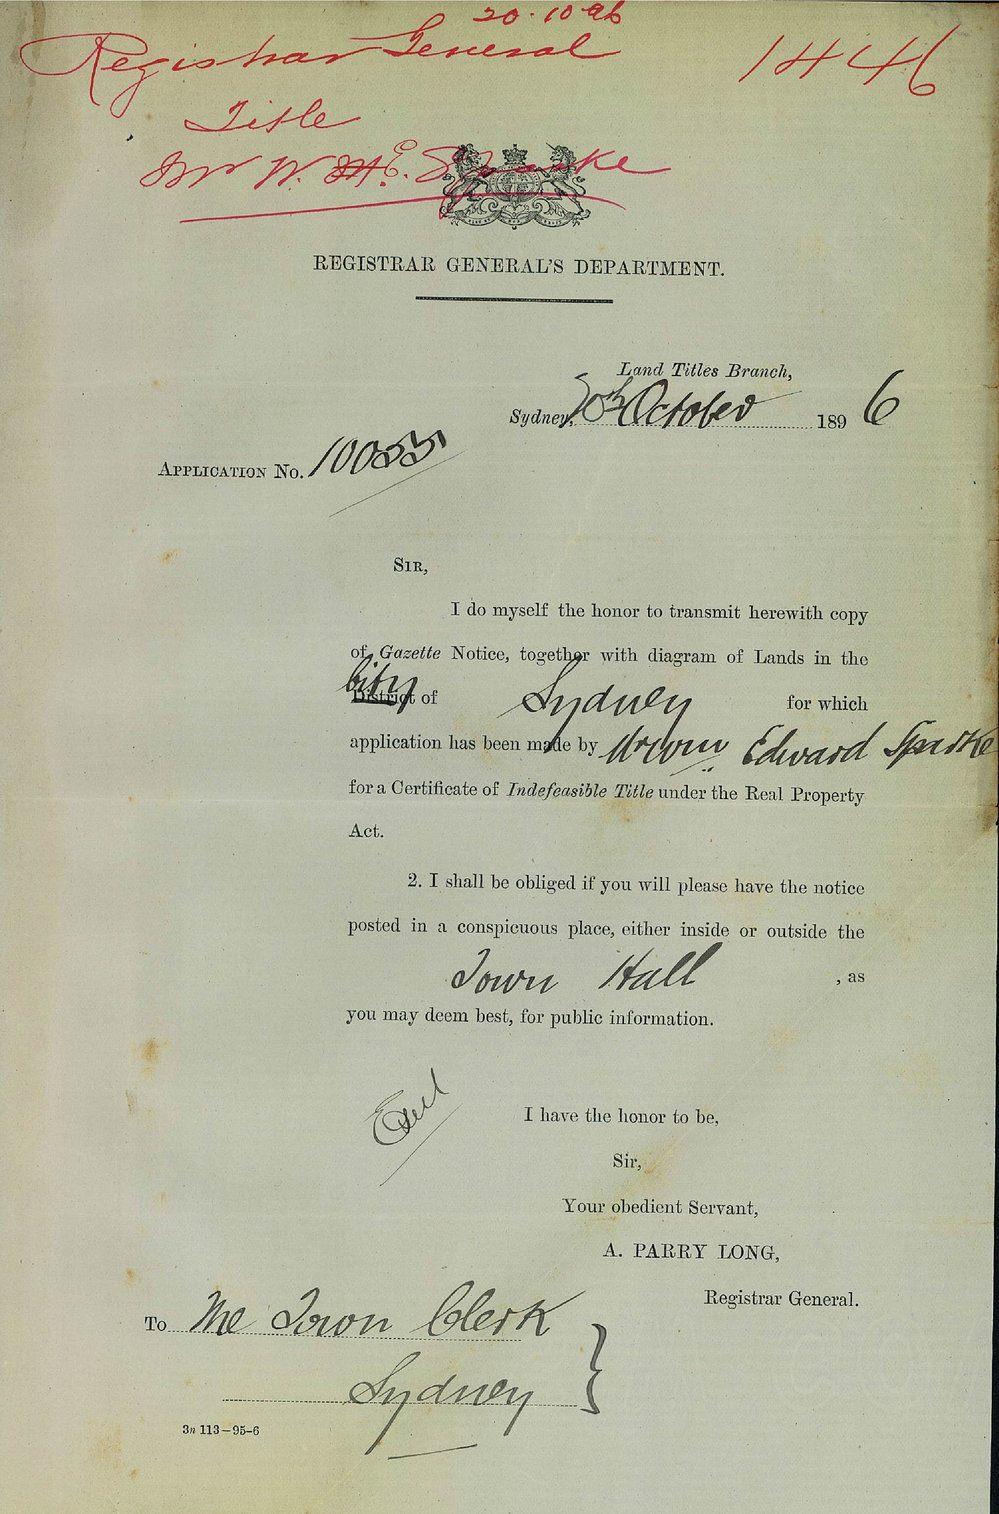 20.10.96
Registrar General
1446
Title
Mr W. E. Sparke
REGISTRAR GENERAL'S DEPARTMENT.
Land Titles Branch,
Sydney, 20th October 1896
APPLICATION No. 10055
SIR,
I do myself the honor to transmit herewith copy
of Gazette Notice, together with diagram of Lands in the
City
District of Sydney for which
application has been made by Edward Sparke
for a Certificate of Indefeasible Title under the Real Property
Act.
2. I shall be obliged if you will please have the notice
posted in a conspicuous place, either inside or outside the
Town Hall , as
you may deem best, for public information.
Encl
I have the honor to be,
Sir,
Your obedient Servant,
A. PARRY LONG,
Registrar General.
To The Town Clerk
Sydney
3n 113–95–6